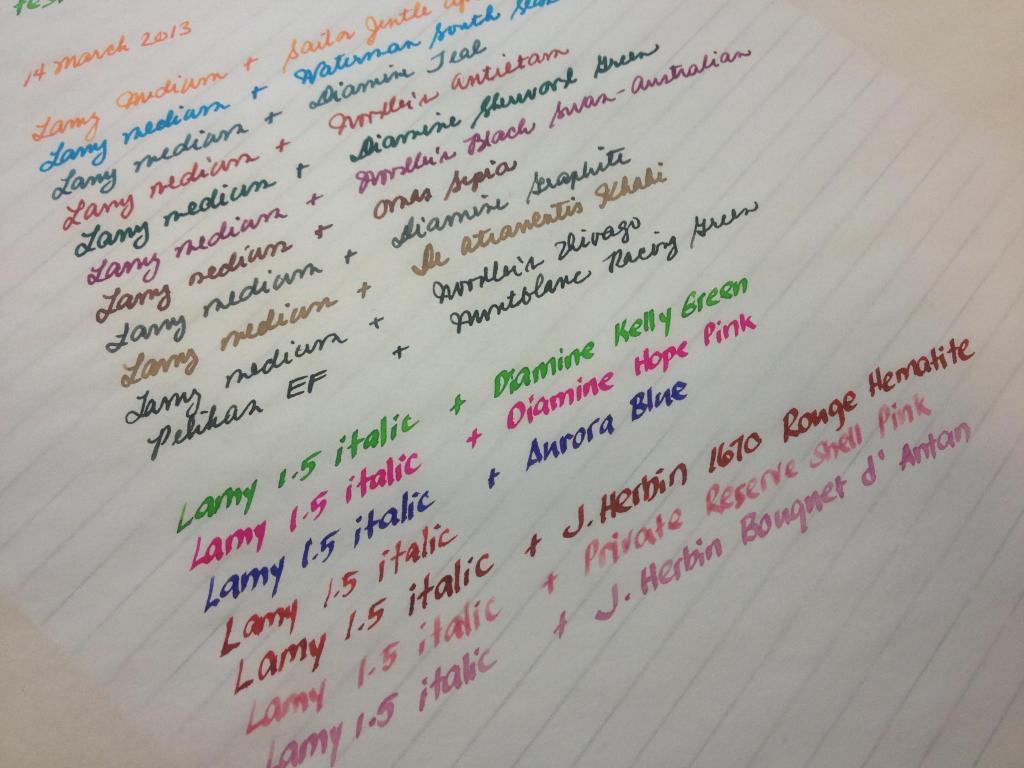 14 March 2013
Lamy medium + Sailor Jentle
Lamy medium + Waterman South
Lamy medium + Diamine Teal
Lamy medium + Noodler's Antietam
Lamy medium + Diamine Sherwood Green
Lamy medium + Noodler's Black Swan-Australian
Lamy medium + Omas Sepia
Lamy medium + Diamine Graphite
Lamy medium + De Atramentis Khaki
Lamy medium + Noodler's Zhivago
Pelikan EF + Montblanc Racing Green
Lamy 1.5 italic + Diamine Kelly Green
Lamy 1.5 italic + Diamine Hope Pink
Lamy 1.5 italic + Aurora Blue
Lamy 1.5 italic
Lamy 1.5 italic + J. Herbin 1670 Rouge Hematite
Lamy 1.5 italic + Private Reserve Shell Pink
Lamy 1.5 italic + J. Herbin Bouquet d'Antan